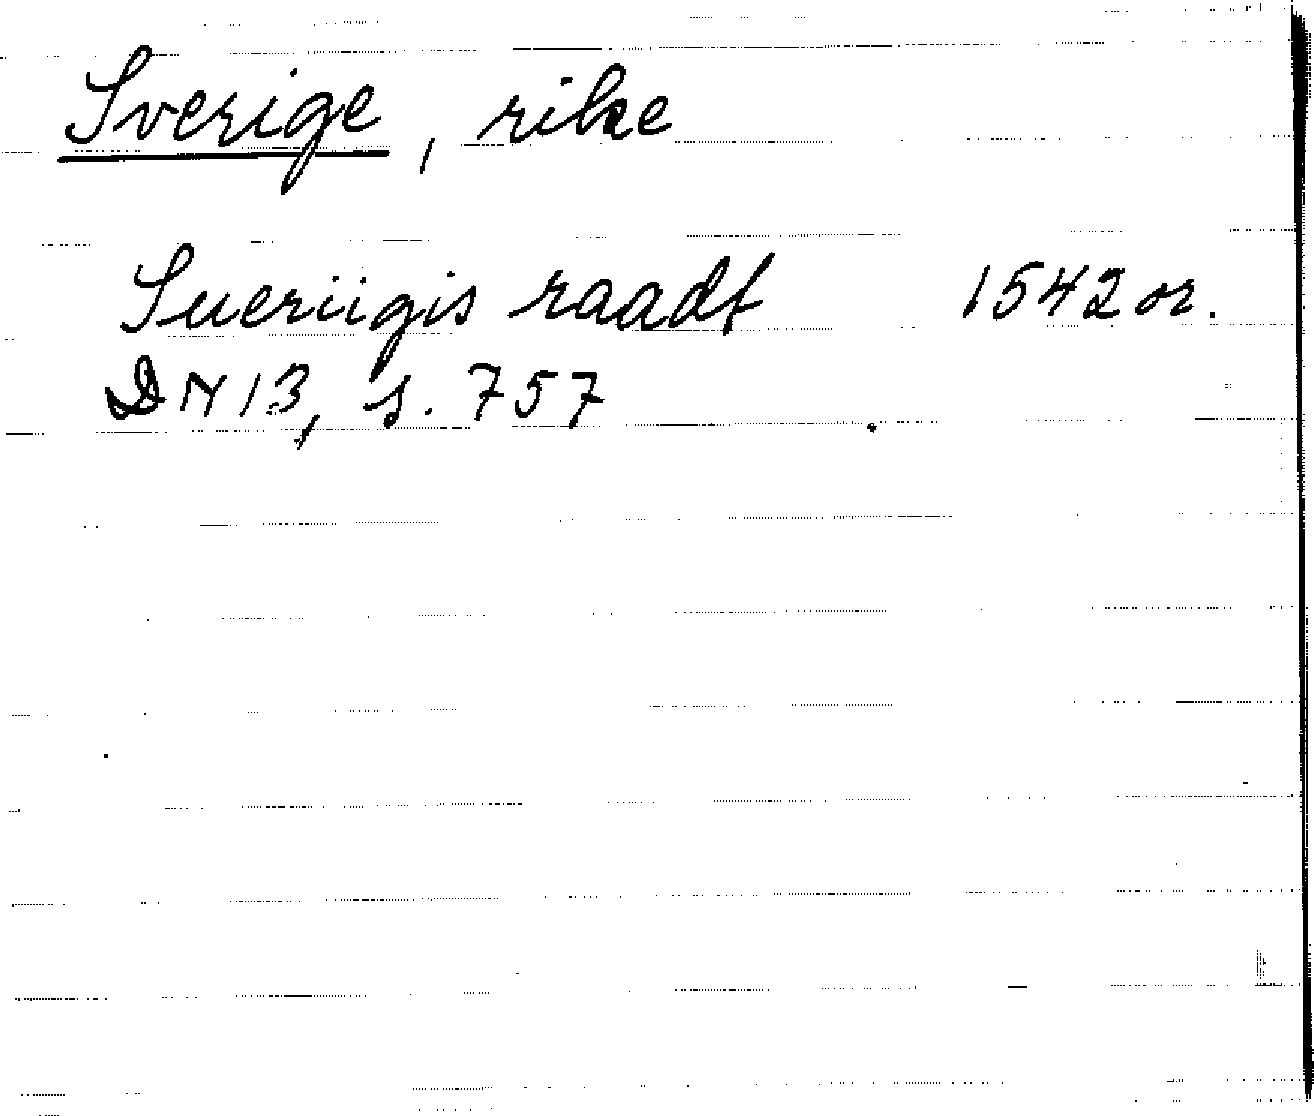 Sverige, rike
Sueriigis raadt 1542 or.
DN 13, s. 757